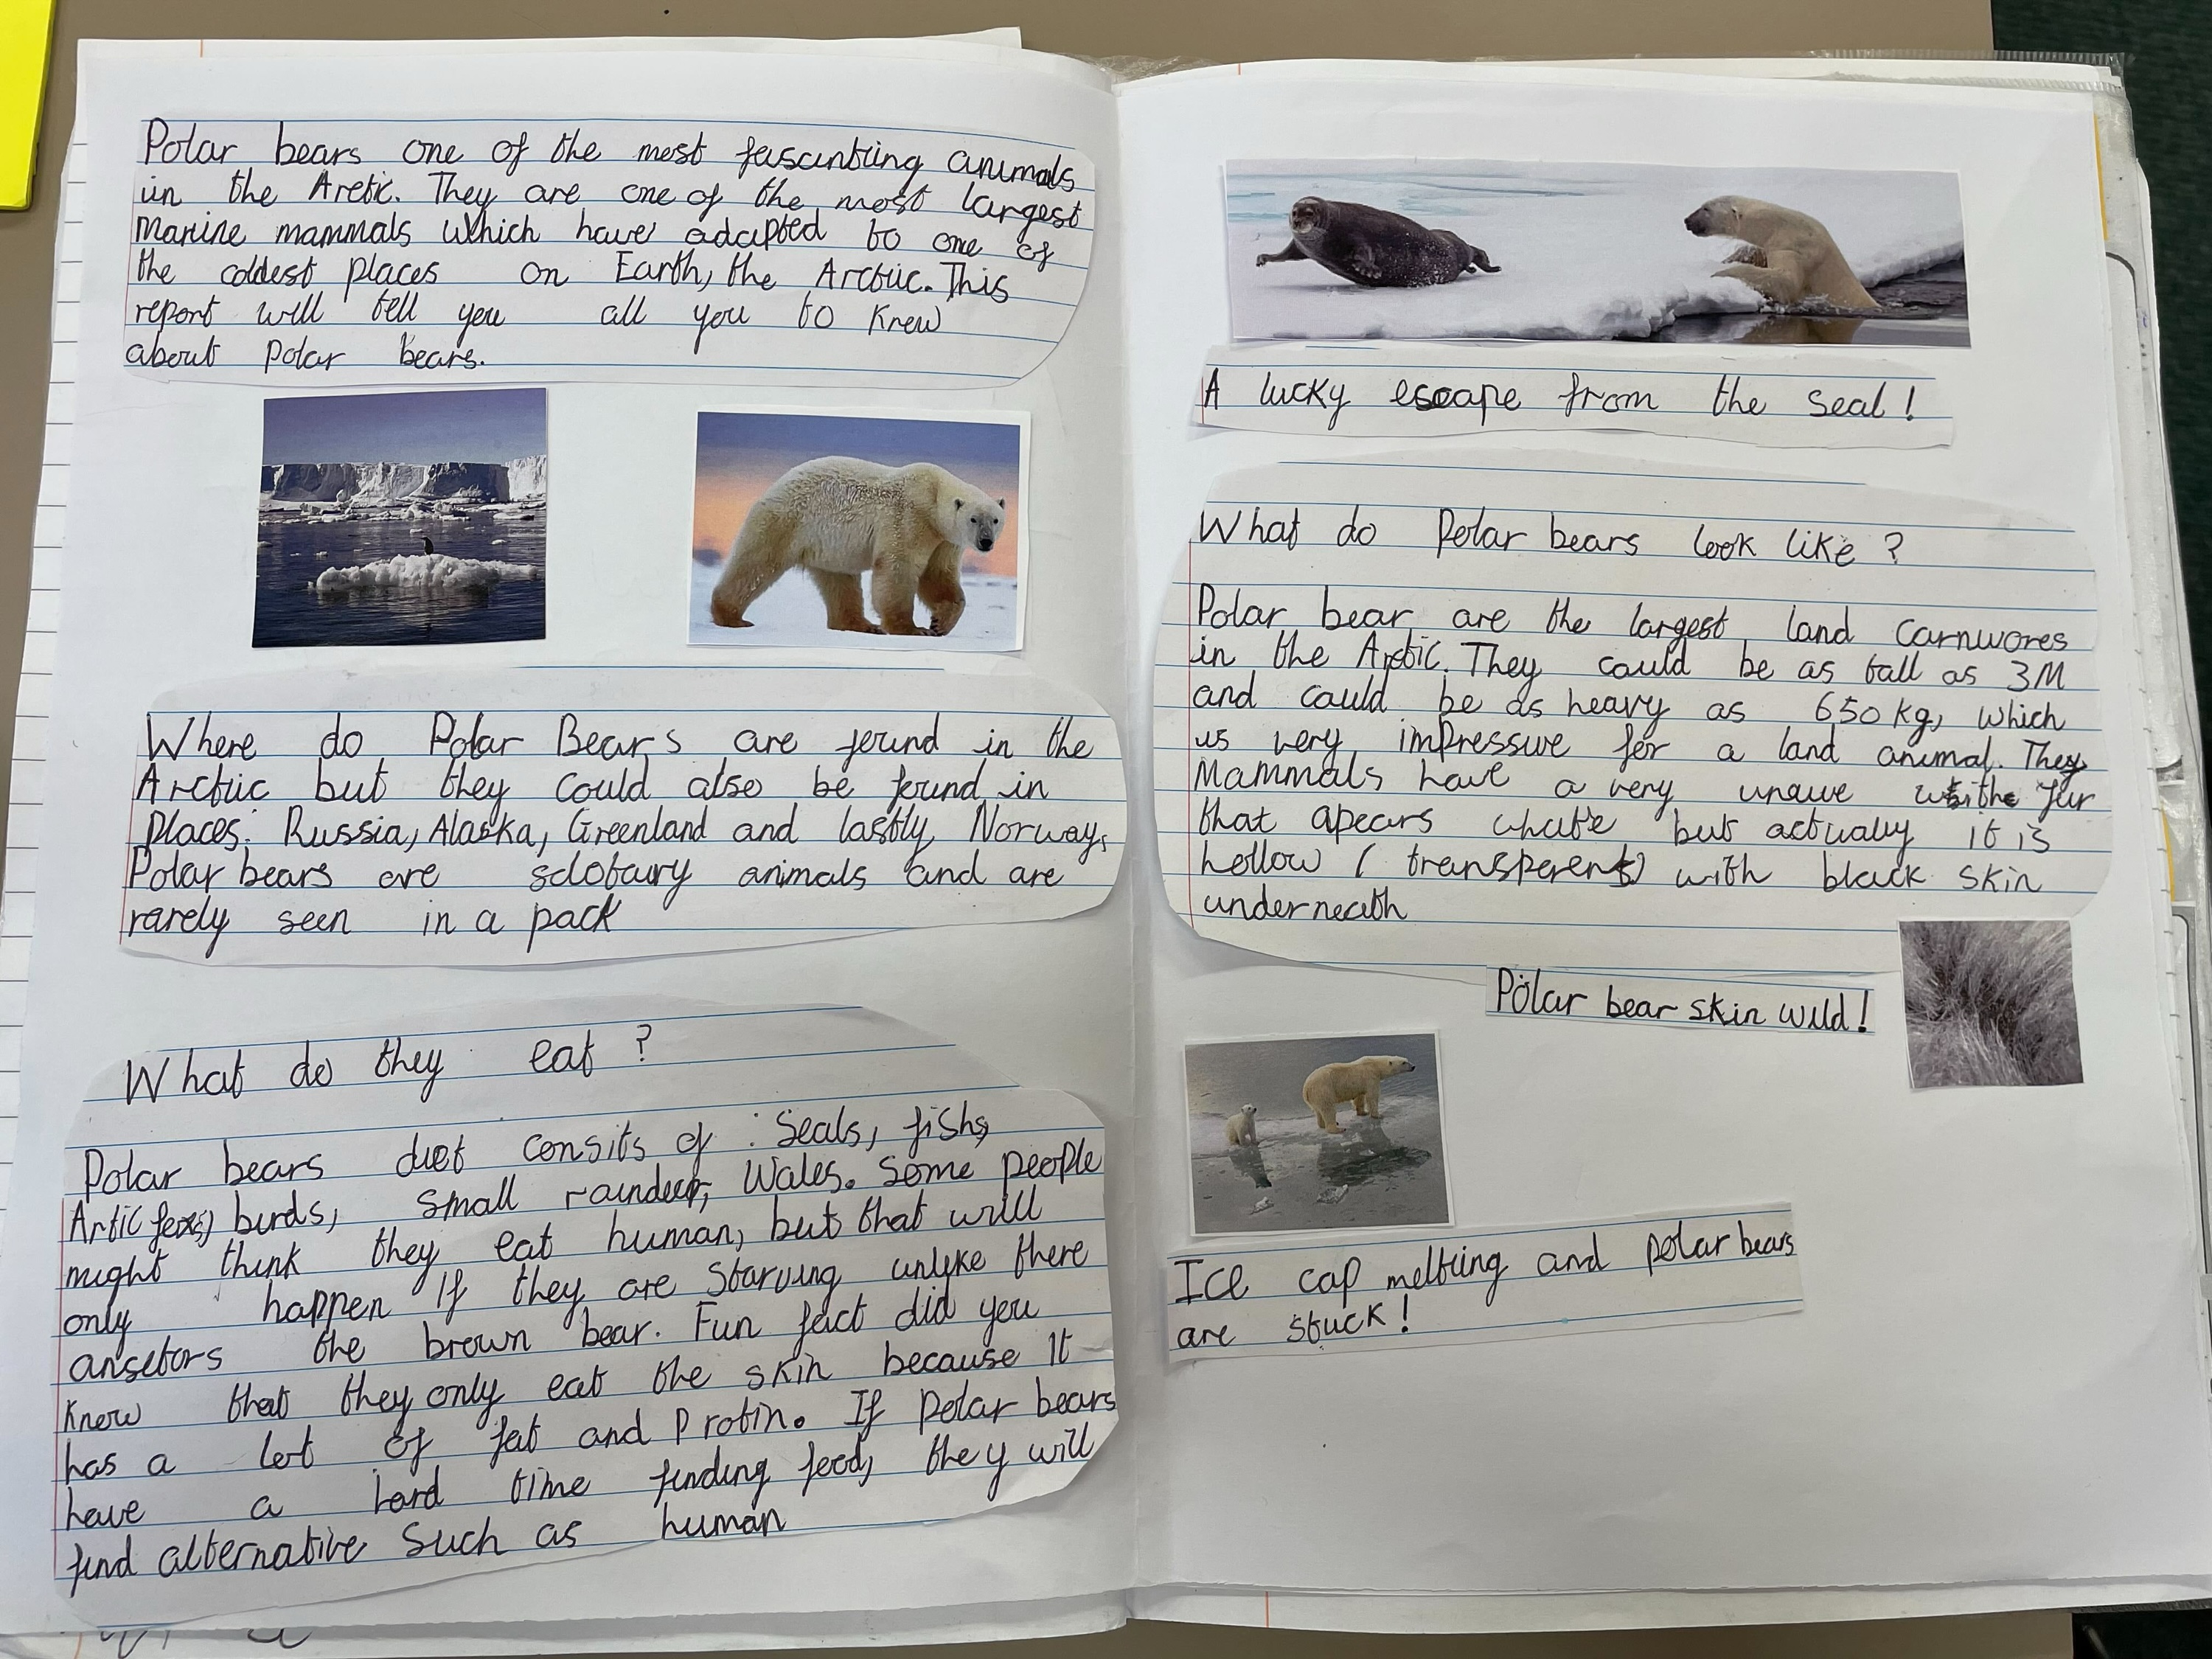 Polar bears one of the most fascintiing animals
in the Aretic. They are one of the most largest
Marine mammals which have adapted to one of
the coldest places on Earth, the Arctic. This
report will tell you all you to Know
about Polar bears.
Where do Polar Bears are found in the
Arctic but they could also be found in
places: Russia, Alaska, Greenland and lastly Norway,
Polar bears are solotairy animals and are
rarely seen in a pack
What do they eat ?
Polar bears diet consits of : Seals, fishs,
Artic foxs, birds, small raindeer, Wales. Some people
might think they eat human, but that will
only happen If they are Starving unlike there
ansetors the brown bear. Fun fact did you
Know that they only eat the skin because It
has a lot of fat and Protin. If polar bears
have a hard time finding food, they will
find alternative Such as human
A lucky escape from the seal !
What do Polar bears look like ?
Polar bear are the largest land carnivores
in the Arctic. They could be as tall as 3M
and could be as heavy as 650 Kg, which
is very impressive for a land animal. They
Mammals have a very unquie fur
that apears white but actually it is
hollow ( transperent) with black skin
underneath
Polar bear skin wild !
Ice cap melting and polar bears
are stuck !